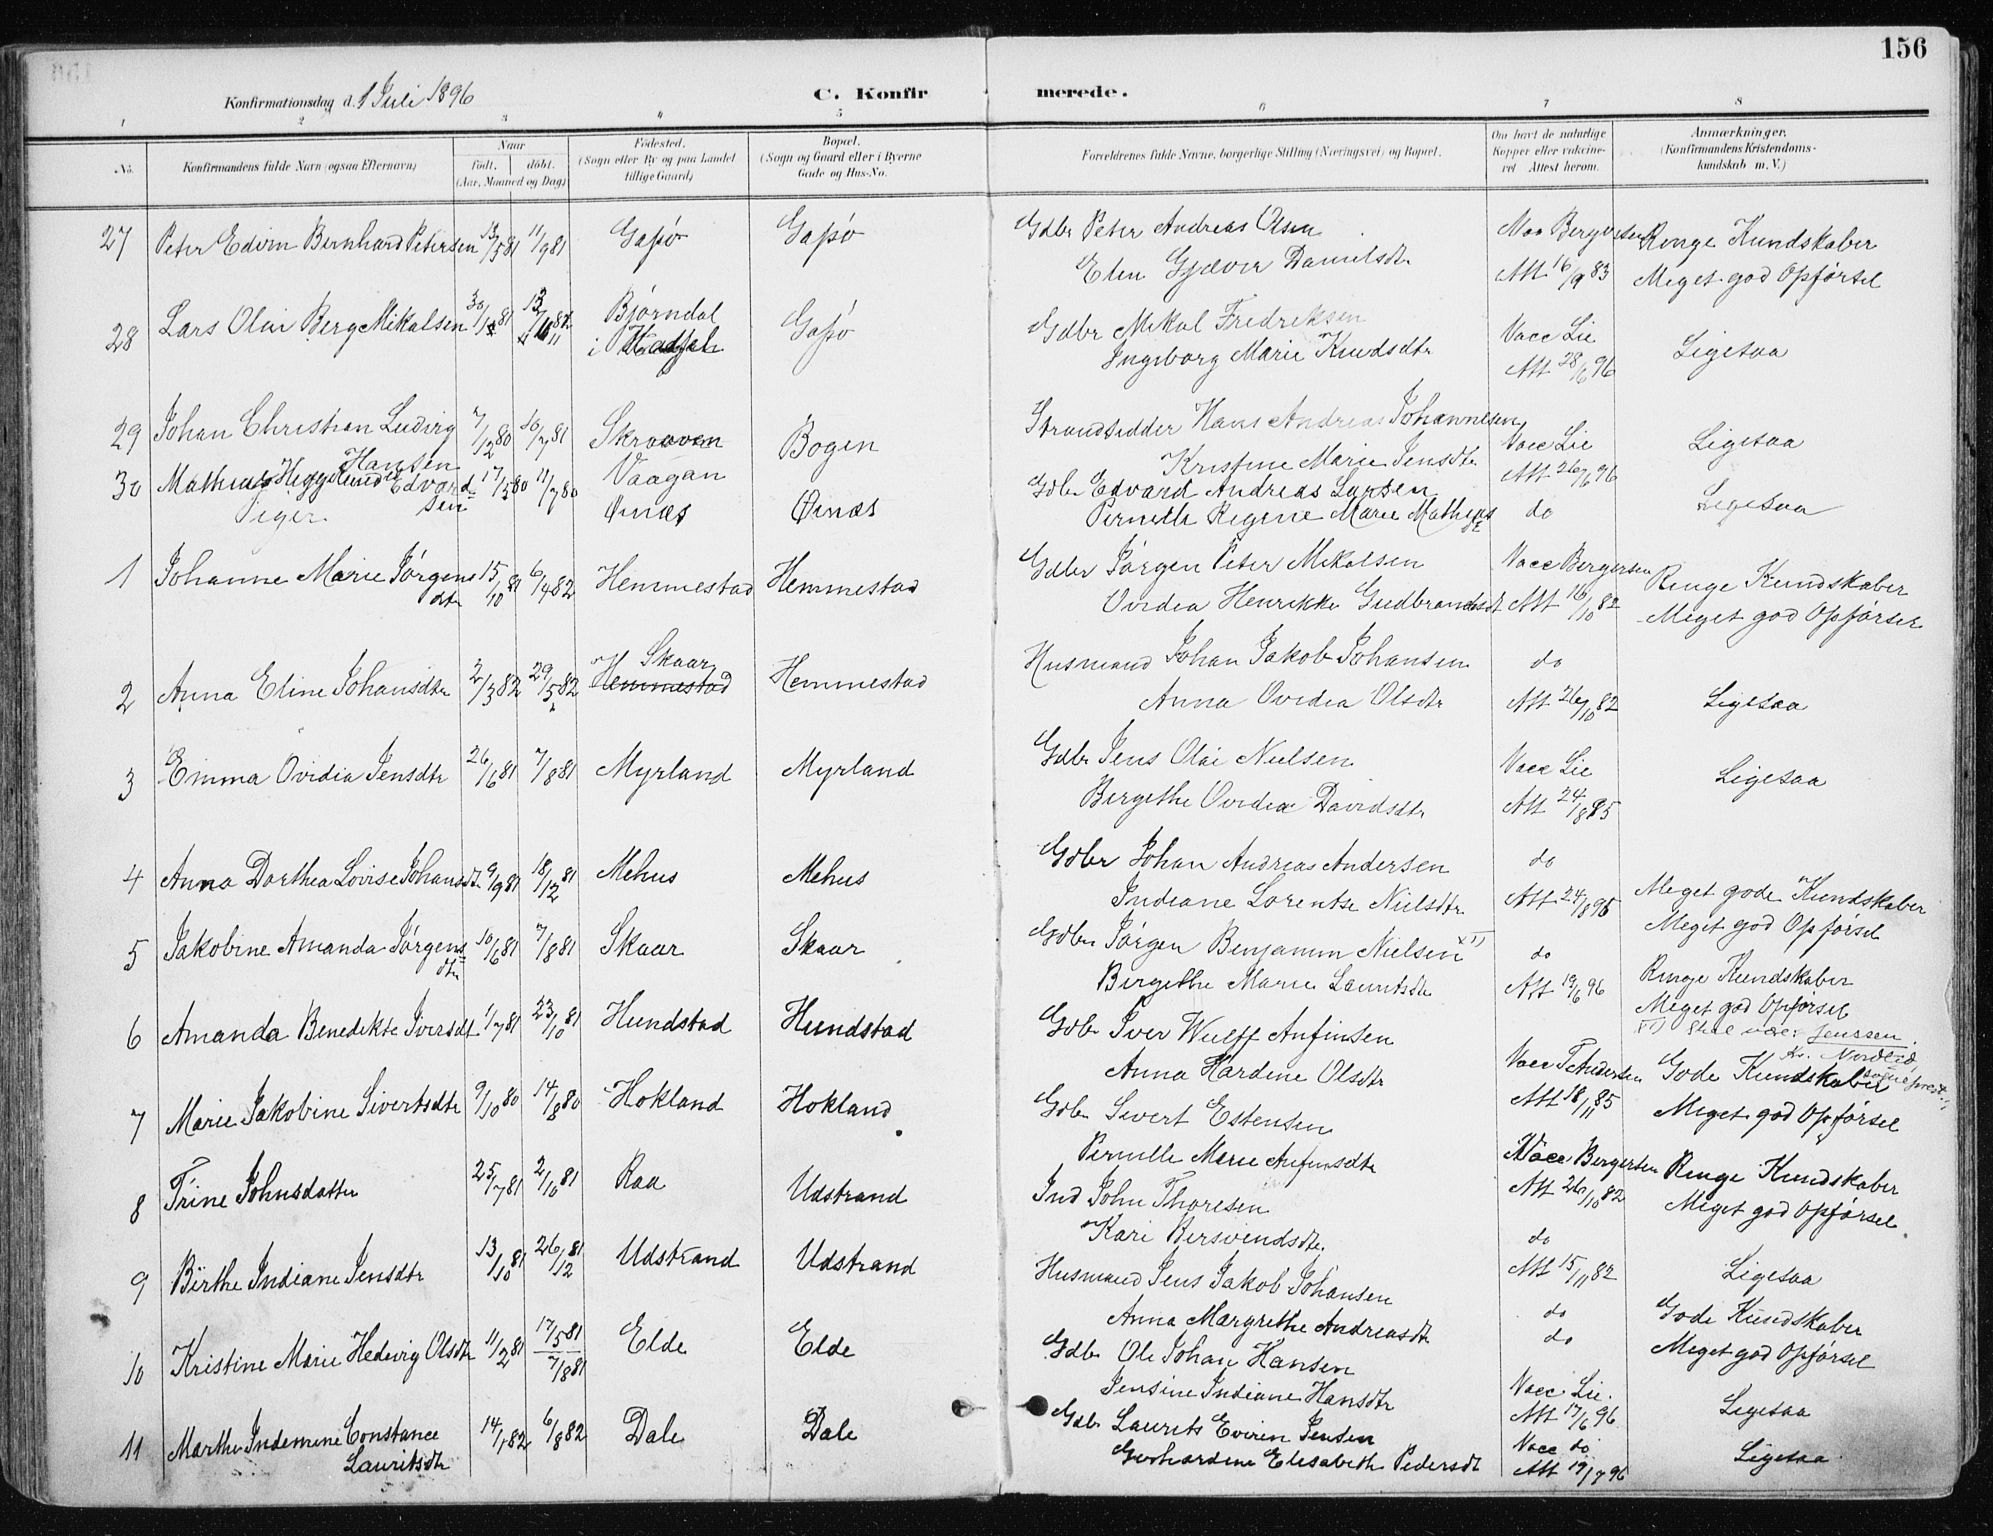 156
Konfirmationsdag d. 1 Juli 1896
C. Konfir merede.
1 2 3 4 5 6 7 8
No.
Konfirmandens fulde Navn (ogsaa Efternavn)
Naar
født. døbt.
(Aar, Maaned og Dag)
Fødested.
(Sogn eller By og paa Landet
tillige Gaard)
Bopæl.
(Sogn og Gaard eller i Byerne
Gade og Hus-No.
Forældrenes fulde Navne, borgerlige Stilling (Næringsvei) og Bopæl.
Om havt de naturlige
Kopper eller vakcine-
ret Attest herom.
Anmærkninger.
(Konfirmandens Kristendoms-
kundskab m. V.)
27 Peter Edvin Bernhard Petersen 13/5 81 11/9 81 Gapø Gapø Gdbr Peter Andreas Olsen Bergersen Ringe Kundskaber
Elen Gjæver Danielsdtr Att 16/9 83 Meget god Opførsel
28 Lars Olai Berg Mikalsen Bjørndal Gapø Gdbr Mikal Fredriksen Vacc Lie Ligesaa
i Ingeborg Marie Knudsdtr Att 28/6 96
29 Johan Christian Ludvig 7/12 80 10/7 81 Skraaven Bogen Strandsidder Hans Andreas Johannesen Vacc Lie Ligesaa
Hansen Vaagan Kristine Marie Jensdtr Att 26/6 96
30 Mathias Hegg Knud Edvard- 17/5 80 11/7 80 Øinæs Øinæs Gdbr Edvard Andreas Larsen do Ligesaa
sen Pernelle Regine Marie Mathiasdtr
Piger
1 Johanne Marie Jørgens 15/10 81 6/4 82 Hemmestad Hemmestad Gdbr Jørgen Peter Mikalsen Vacc Bergersen Ringe Kundskaber
dtr Ovidia Henrikke Gudbrandsdtr Att 16/10 82 Meget god Opførsel
2 Anna Eline Johansdtr 2/3 82 29/5 82 Skaar Hemmestad Hemmestad Husmand Johan Jakob Johansen do Ligesaa
Anna Ovidia Olsdtr Att 26/10 82
3 Emma Ovidia Jensdtr 26/6 81 7/8 81 Myrland Myrland Gdbr Jens Olai Nielsen Vacc Lie Ligesaa
Bergithe Ovidia Davidsdtr Att 24/8 95
4 Anna Dorthea Lovise Johansdtr 9/9 81 18/12 81 Mehus Mehus Gdbr Johan Andreas Andersen do Meget gode Kundskaber
Indiane Lorentse Nielsdtr Att 24/8 95 Meget god Opførsel
5 Jakobine Amanda Jørgens 10/6 81 7/8 81 Skaar Skaar Gdbr Jørgen Benjamin Nielsen x1) do Ringe Kundskaber
dtr Bergithe Marie Lauritsdtr Att 19/6 96 Meget god Opførsel
x1) Skal være Jenssen.
Kr. Nordlid
sogneprest
6 Amanda Benedikte Iversdtr 1/7 81 23/10 81 Hundstad Hundstad Gdbr Iver Wulff Anfinsen Vacc T Andersen Gode Kundskaber
Anna Hardine Olsdtr Att 18/11 85 Meget god Opførsel
7 Marie Jakobine Sivertsdtr 9/10 80 14/8 80 Hokland Hokland Gdbr Sivert Estensen Vacc Bergersen Ringe Kundskaber
Pernelle Marie Anfinsdtr Att 26/10 82 Meget god Opførsel.
8 Trine Johnsdatter 25/7 81 2/10 81 Raa Udstrand Ind John Thoresen do Ligesaa
Kari Bersvendsdtr. Att 15/11 82
9 Birthe Indiane Jensdtr 13/10 81 26/12 81 Udstrand Udstrand Husmand Jens Jakob Johansen do Gode Kundskaber
Anna Margrethe Andreasdtr do Meget god Opførsel
10 Kristine Marie Hedevig Olsdtr 11/2 81 17/5 81 7/8 81 Elde Elde Gdbr Ole Johan Hansen Vacc Lie. Ligesaa
Jensine Indiane Hansdtr Att 17/6 96
11 Marthe Indemine Constance 14/1 82 6/8 82 Dale Dale Gdbr Laurits Eviren Jensen Vacc do Ligesaa
Lauritsdtr Gerhardine Elisabeth Pedersdt Att 19/7 96